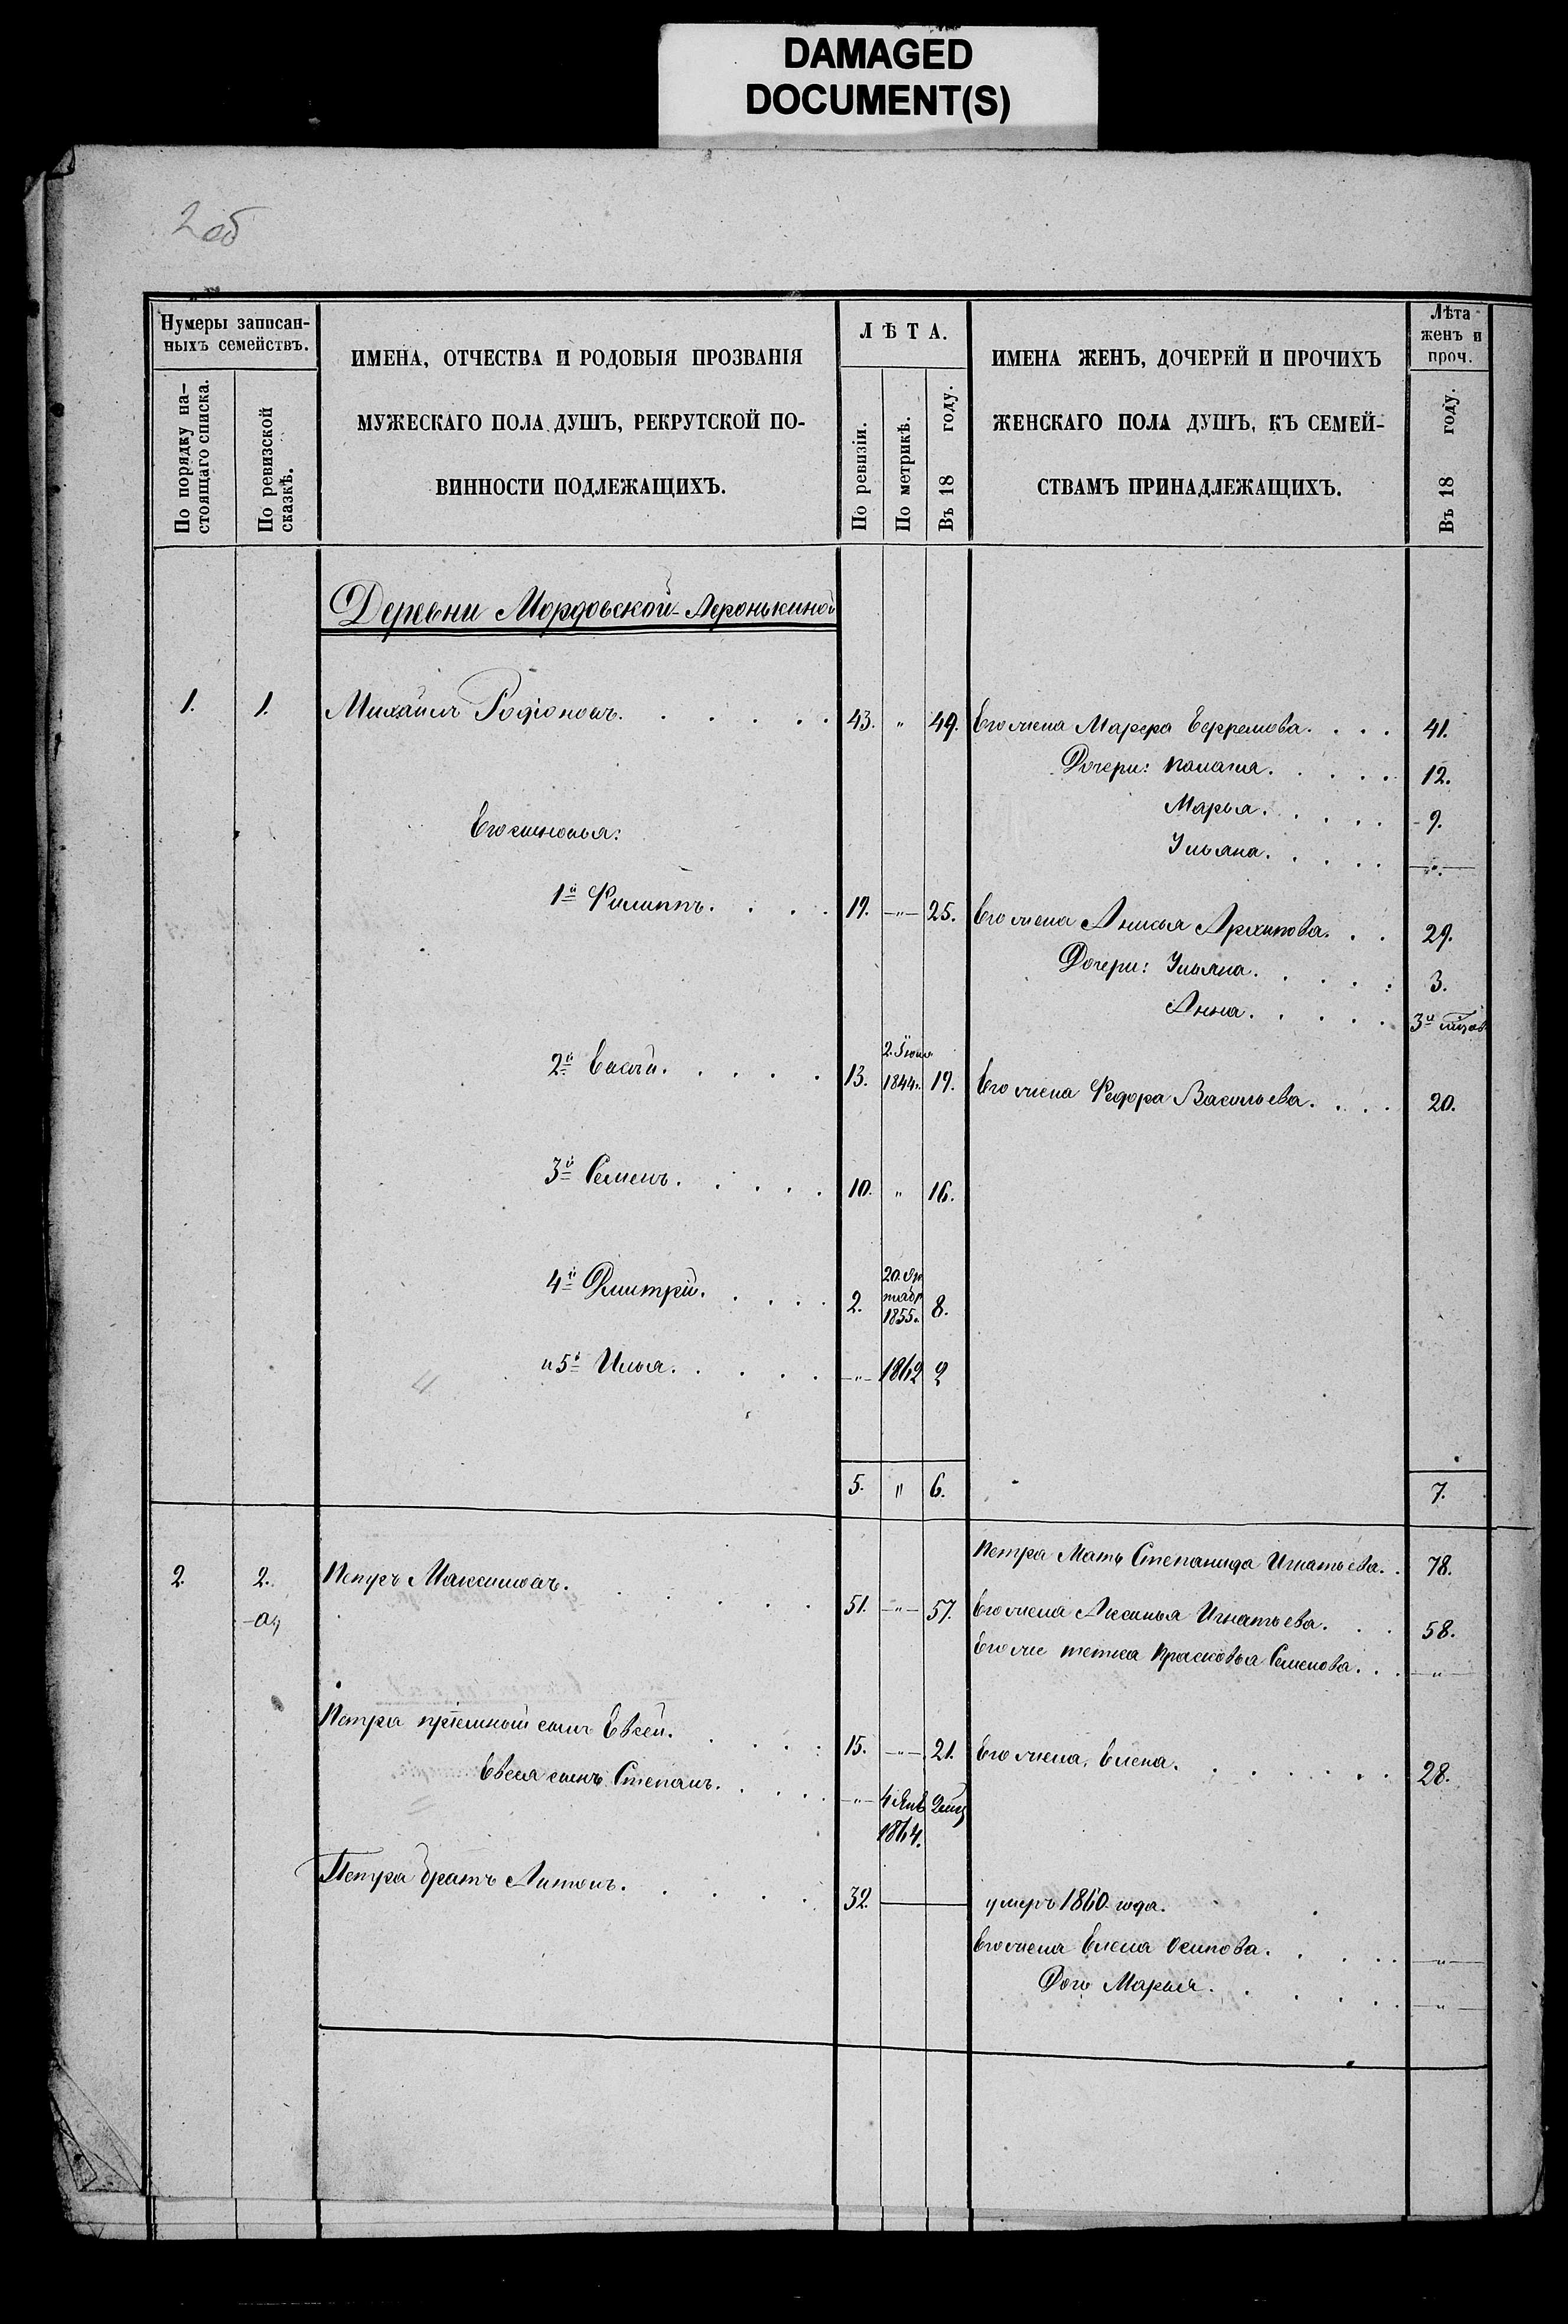 DAMAGED
DOCUMENT(S)
2 об
Нумеры записан-
ныхъ семействъ.
По порядку на-
стоящаго списка.
По ревизской
сказкѣ.
ИМЕНА, ОТЧЕСТВА И РОДОВЫЯ ПРОЗВАНІЯ
МУЖЕСКАГО ПОЛА ДУШЪ, РЕКРУТСКОЙ ПО-
ВИННОСТИ ПОДЛЕЖАЩИХЪ.
ЛѢТА.
По ревизіи.
По метрикѣ.
Въ 18 году.
ИМЕНА ЖЕНЪ, ДОЧЕРЕЙ И ПРОЧИХЪ
ЖЕНСКАГО ПОЛА ДУШЪ, КЪ СЕМЕЙ-
СТВАМЪ ПРИНАДЛЕЖАЩИХЪ.
Лѣта
женъ и
проч.
Въ 18 году.
Деревни Мордовской-
1. 1. Михаилъ Родіоновъ. 43. " 49. Его жена Марфа Ефремова. 41.
Дочери: Палагія. 12.
Марья. 9.
Его сыновья:
Ульяна. "
1й Филиппъ. 19. " 25. Его жена Анисья Архипова. 29.
Дочери: Ульяна. 3.
Анна. 3х
2й 13. 2. 1844. 19. Его жена Федора Васильева. 20.
3й Семенъ. 10. " 16.
4й Дмитрій. 2. 20. 1855. 8.
и 5й Илья. " 1862 2
5. " 6. 7.
Петра Мать Степанида Игнатьева. 78.
2. 2. Петръ Максимовъ. 51. " 57. Его жена Аксинья Игнатьева. 58.
Его же тетка Прасковья Семенова. "
Петра пріемный сынъ Евсей. 15. " 21. Его жена, Елена. 28.
Евсея сынъ Степанъ. " 4 Янв 1864.
Петра братъ Антонъ. 32. умеръ 1860 года.
Его жена Елена Осипова. "
Дочь Марья. "